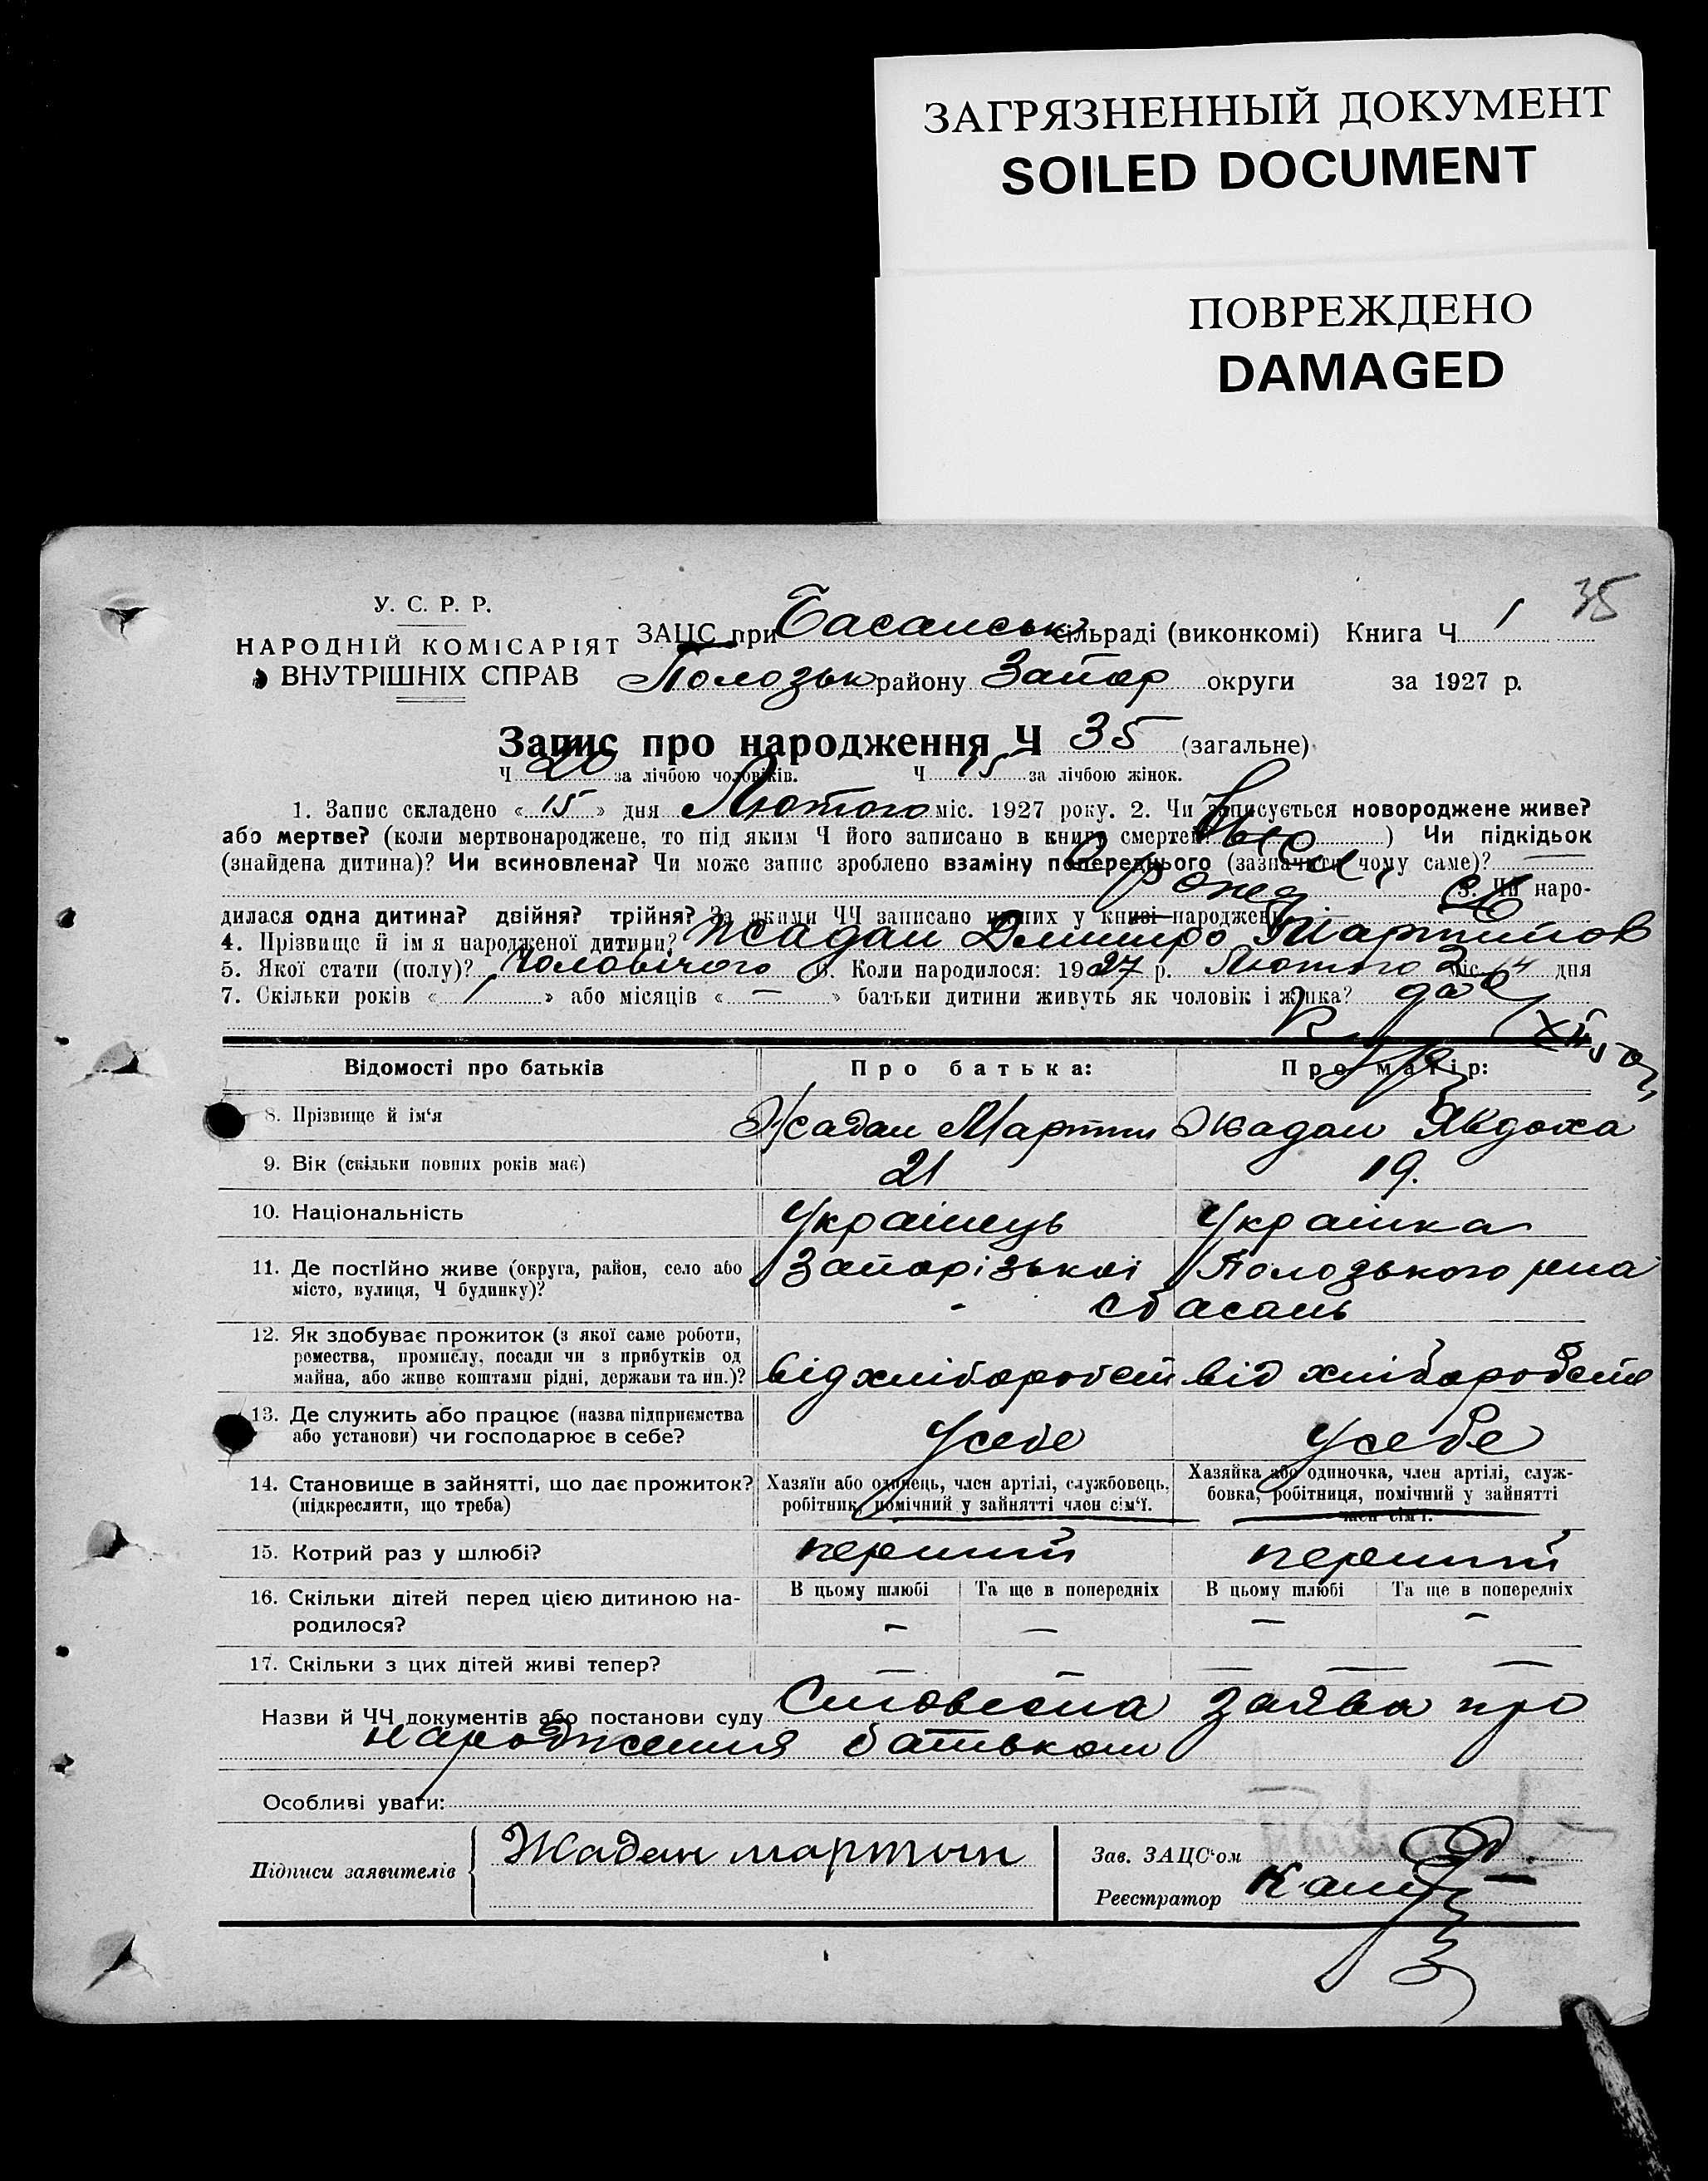 ЗАГРЯЗНЕННЫЙ ДОКУМЕНТ
SOILED DOCUMENT
ПОВРЕЖДЕНО
DAMAGED
35
У. С. Р. Р.
НАРОДНІЙ КОМІСАРІЯТ
ВНУТРІШНІХ СПРАВ
ЗАЦС при Басанськ сільраді (виконкомі) Книга Ч 1
Полозьк району Запор округи за 1927 р.
Запис про народження Ч 35 (загальне)
Ч 20 за лічбою чоловіків. Ч 15 за лічбою жінок.
1. Запис складено « 15 » дня Лютого міс. 1927 року. 2. Чи записується новороджене живе?
або мертве? (коли мертвонароджене, то під яким Ч його записано в книгу смертей ) Чи підкідьок
(знайдена дитина)? Чи всиновлена? Чи може запис зроблено взаміну попереднього (зазначити чому саме)?
3. Чи наро-
дилася одна дитина? двійня? трійня? За якими ЧЧ записано инших у книзі народжень
4. Прізвище й ім'я народженої дитини? Жадан Дмитро Мартинов
5. Якої стати (полу)? Чоловічого 6. Коли народилося: 1927 р. Лютого 2 міс. 14 дня
7. Скільки років « 1 » або місяців « — » батьки дитини живуть як чоловік і жінка?
Відомості про батьків Про батька: Про матір:
8. Прізвище й ім'я Жадан Мартин Жадан Явдоха
9. Вік (скільки повних років має) 21 19.
10. Національність Українець Українка
11. Де постійно живе (округа, район, село або Запорізької Полозького р-на
місто, вулиця, Ч будинку)? с Басань
12. Як здобуває прожиток (з якої саме роботи,
ремества, промислу, посади чи з прибутків од
майна, або живе коштами рідні, держави та ин.)? від хліборобств від хліборобств
13. Де служить або працює (назва підприємства
або установи) чи господарює в себе? У себе У себе
14. Становище в зайнятті, що дає прожиток? Хазяїн або одинець, член артілі, службовець, Хазяйка або одиночка, член артілі, служ-
(підкреслити, що треба) робітник, помічний у зайнятті член сім'ї. бовка, робітниця, помічний у зайнятті
член сім'ї.
15. Котрий раз у шлюбі? перший перший
16. Скільки дітей перед цією дитиною на- В цьому шлюбі Та ще в попередніх В цьому шлюбі Та ще в попередніх
родилося? — — — —
17. Скільки з цих дітей живі тепер? — — — —
Назви й ЧЧ документів або постанови суду Словесна заява про
народження батьком
Особливі уваги:
Підписи заявителів Жадан мартин
Зав. ЗАЦС'ом
Реєстратор